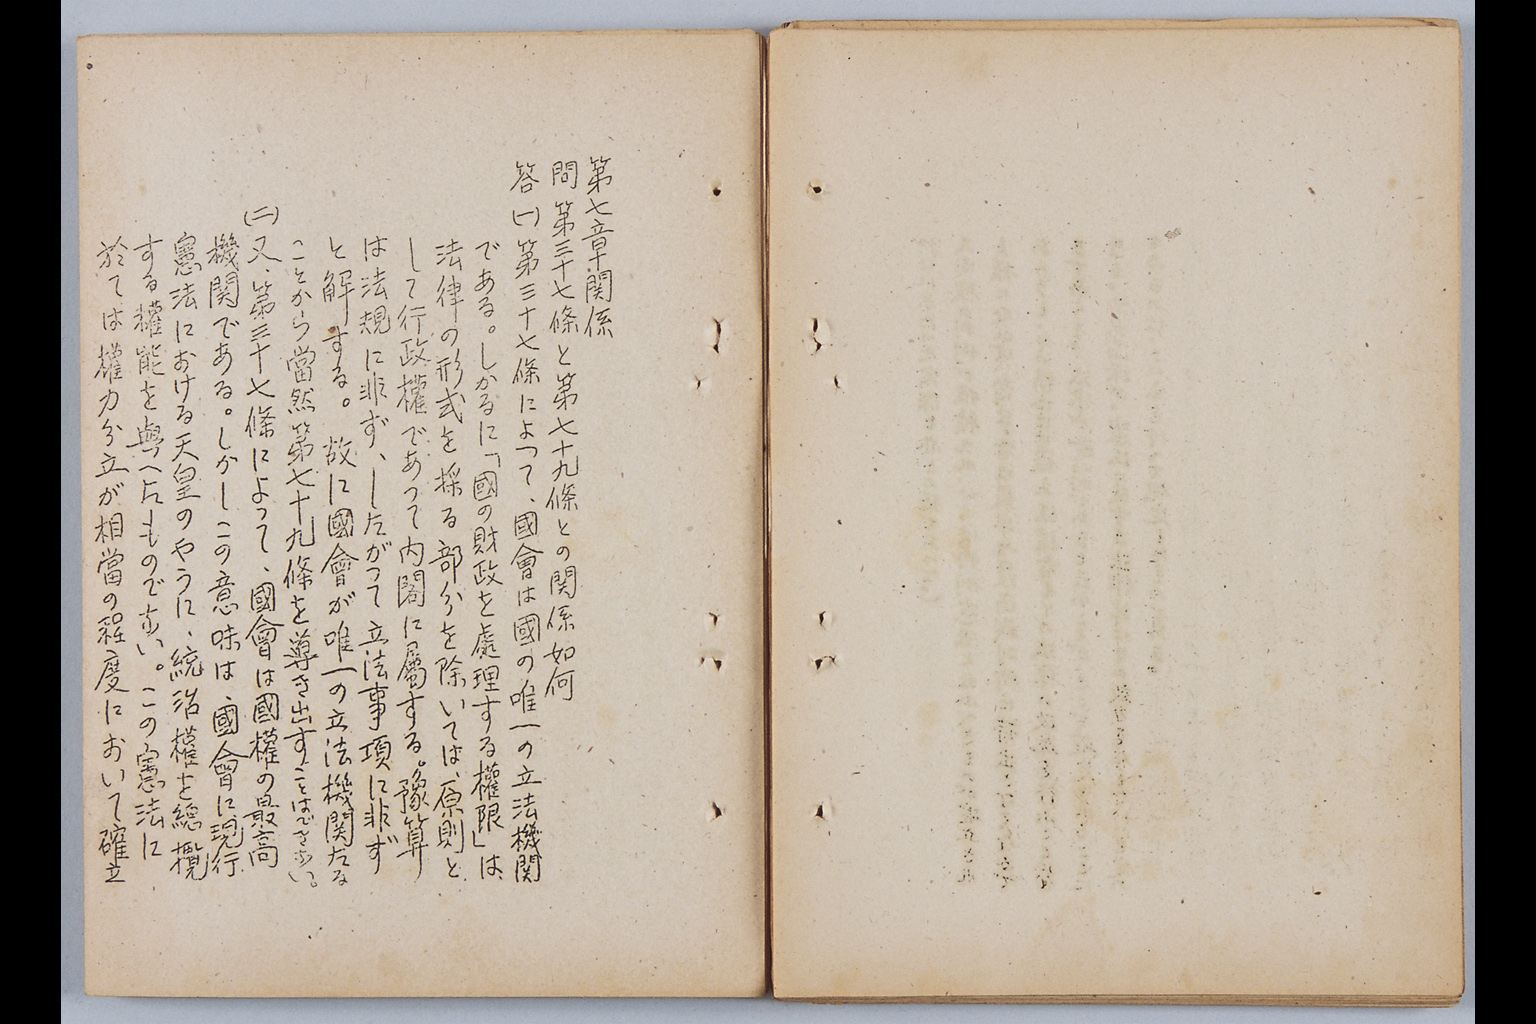 第七章関係
問 第三十七條と第七十九條との関係如何
答 (一) 第三十七條によつて、國會は國の唯一の立法機関
である。しかるに「國の財政を處理する權限」は、
法律の形式を採る部分を除いては、原則と
して行政權であつて内閣に屬する。豫算
は法規に非ず、したがつて立法事項に非ず
と解する。故に國會が唯一の立法機関たる
ことから當然第七十九條を導き出すことはできない。
(二) 又、第三十七條によつて、國會は國權の最高
機関である。しかしこの意味は、國會に現行
憲法における天皇のやうに、統治權を總攬
する權能を與へたものでない。この憲法に
於ては權力分立が相當の程度において確立